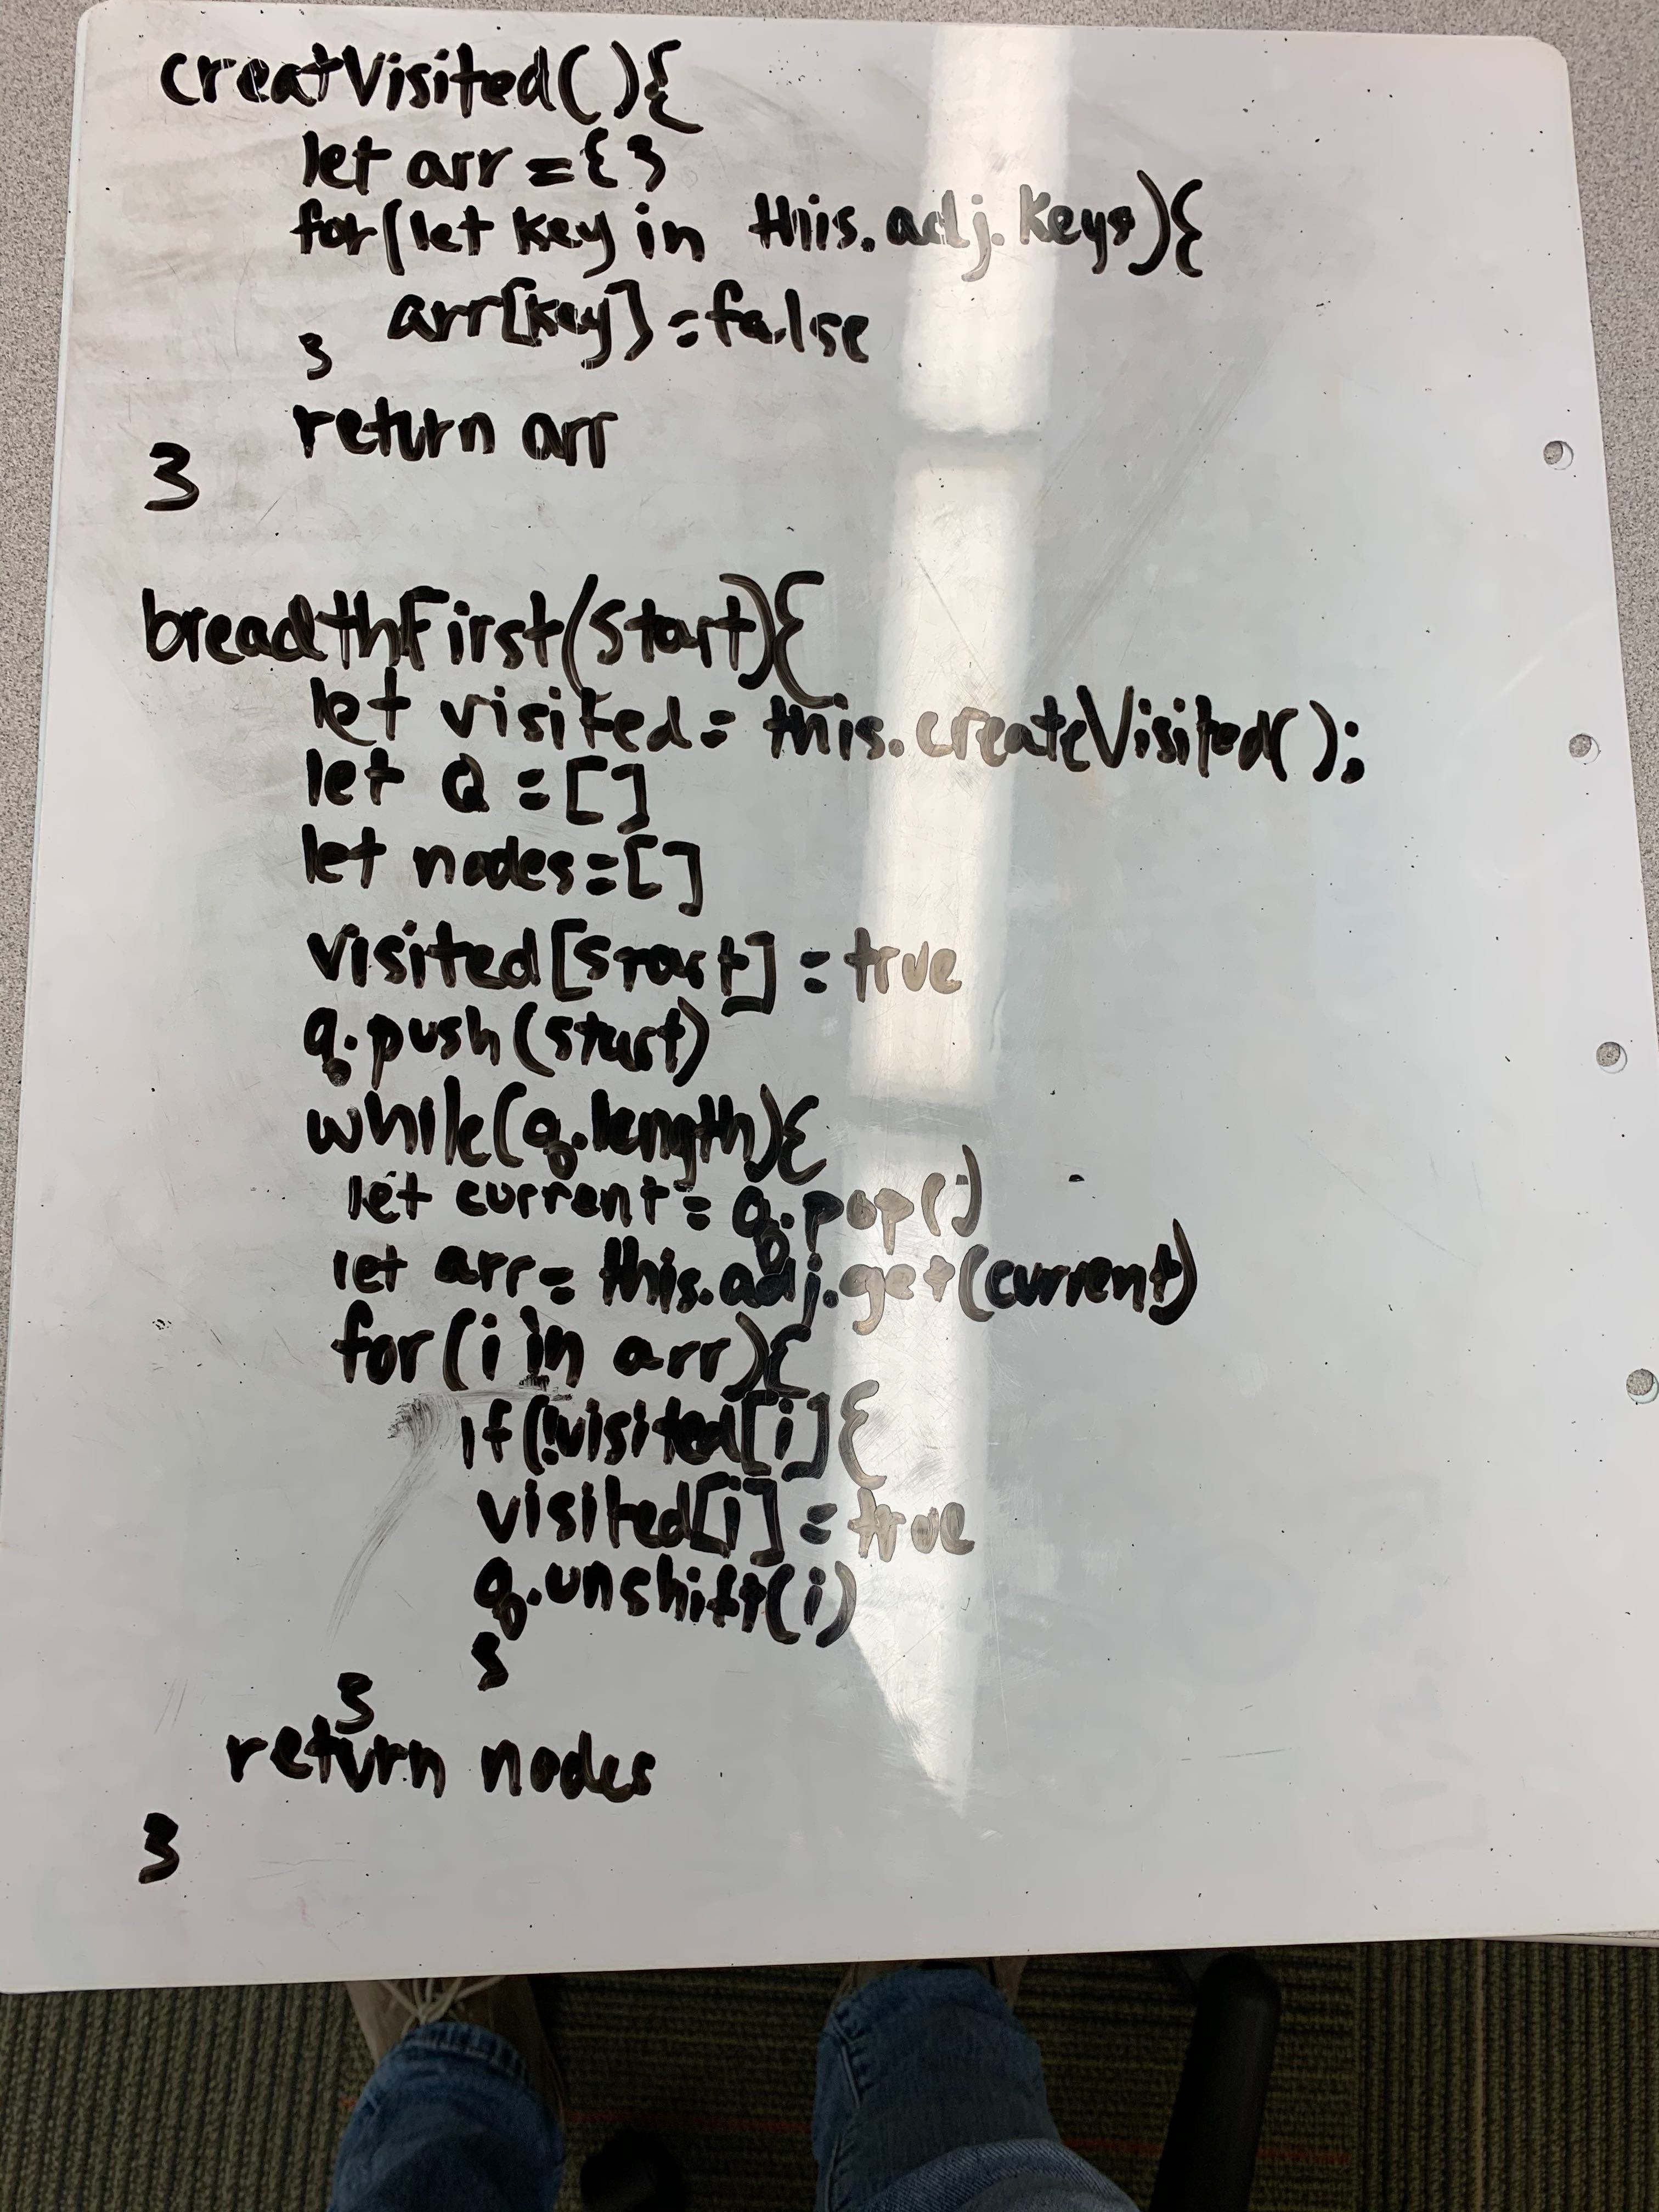 creatVisited(){
let arr = {}
for(let key in this.adj.keys){
arr[key] = false
}
return arr
}
breadthFirst(start){
let visited = this.createVisited();
let Q = []
let nodes = []
visited[start] = true
q.push(start)
while(q.length){
let current = q.pop()
let arr = this.adj.get(current)
for(i in arr){
if(!visited[i]{
visited[i] = true
q.unshift(i)
}
}
return nodes
}